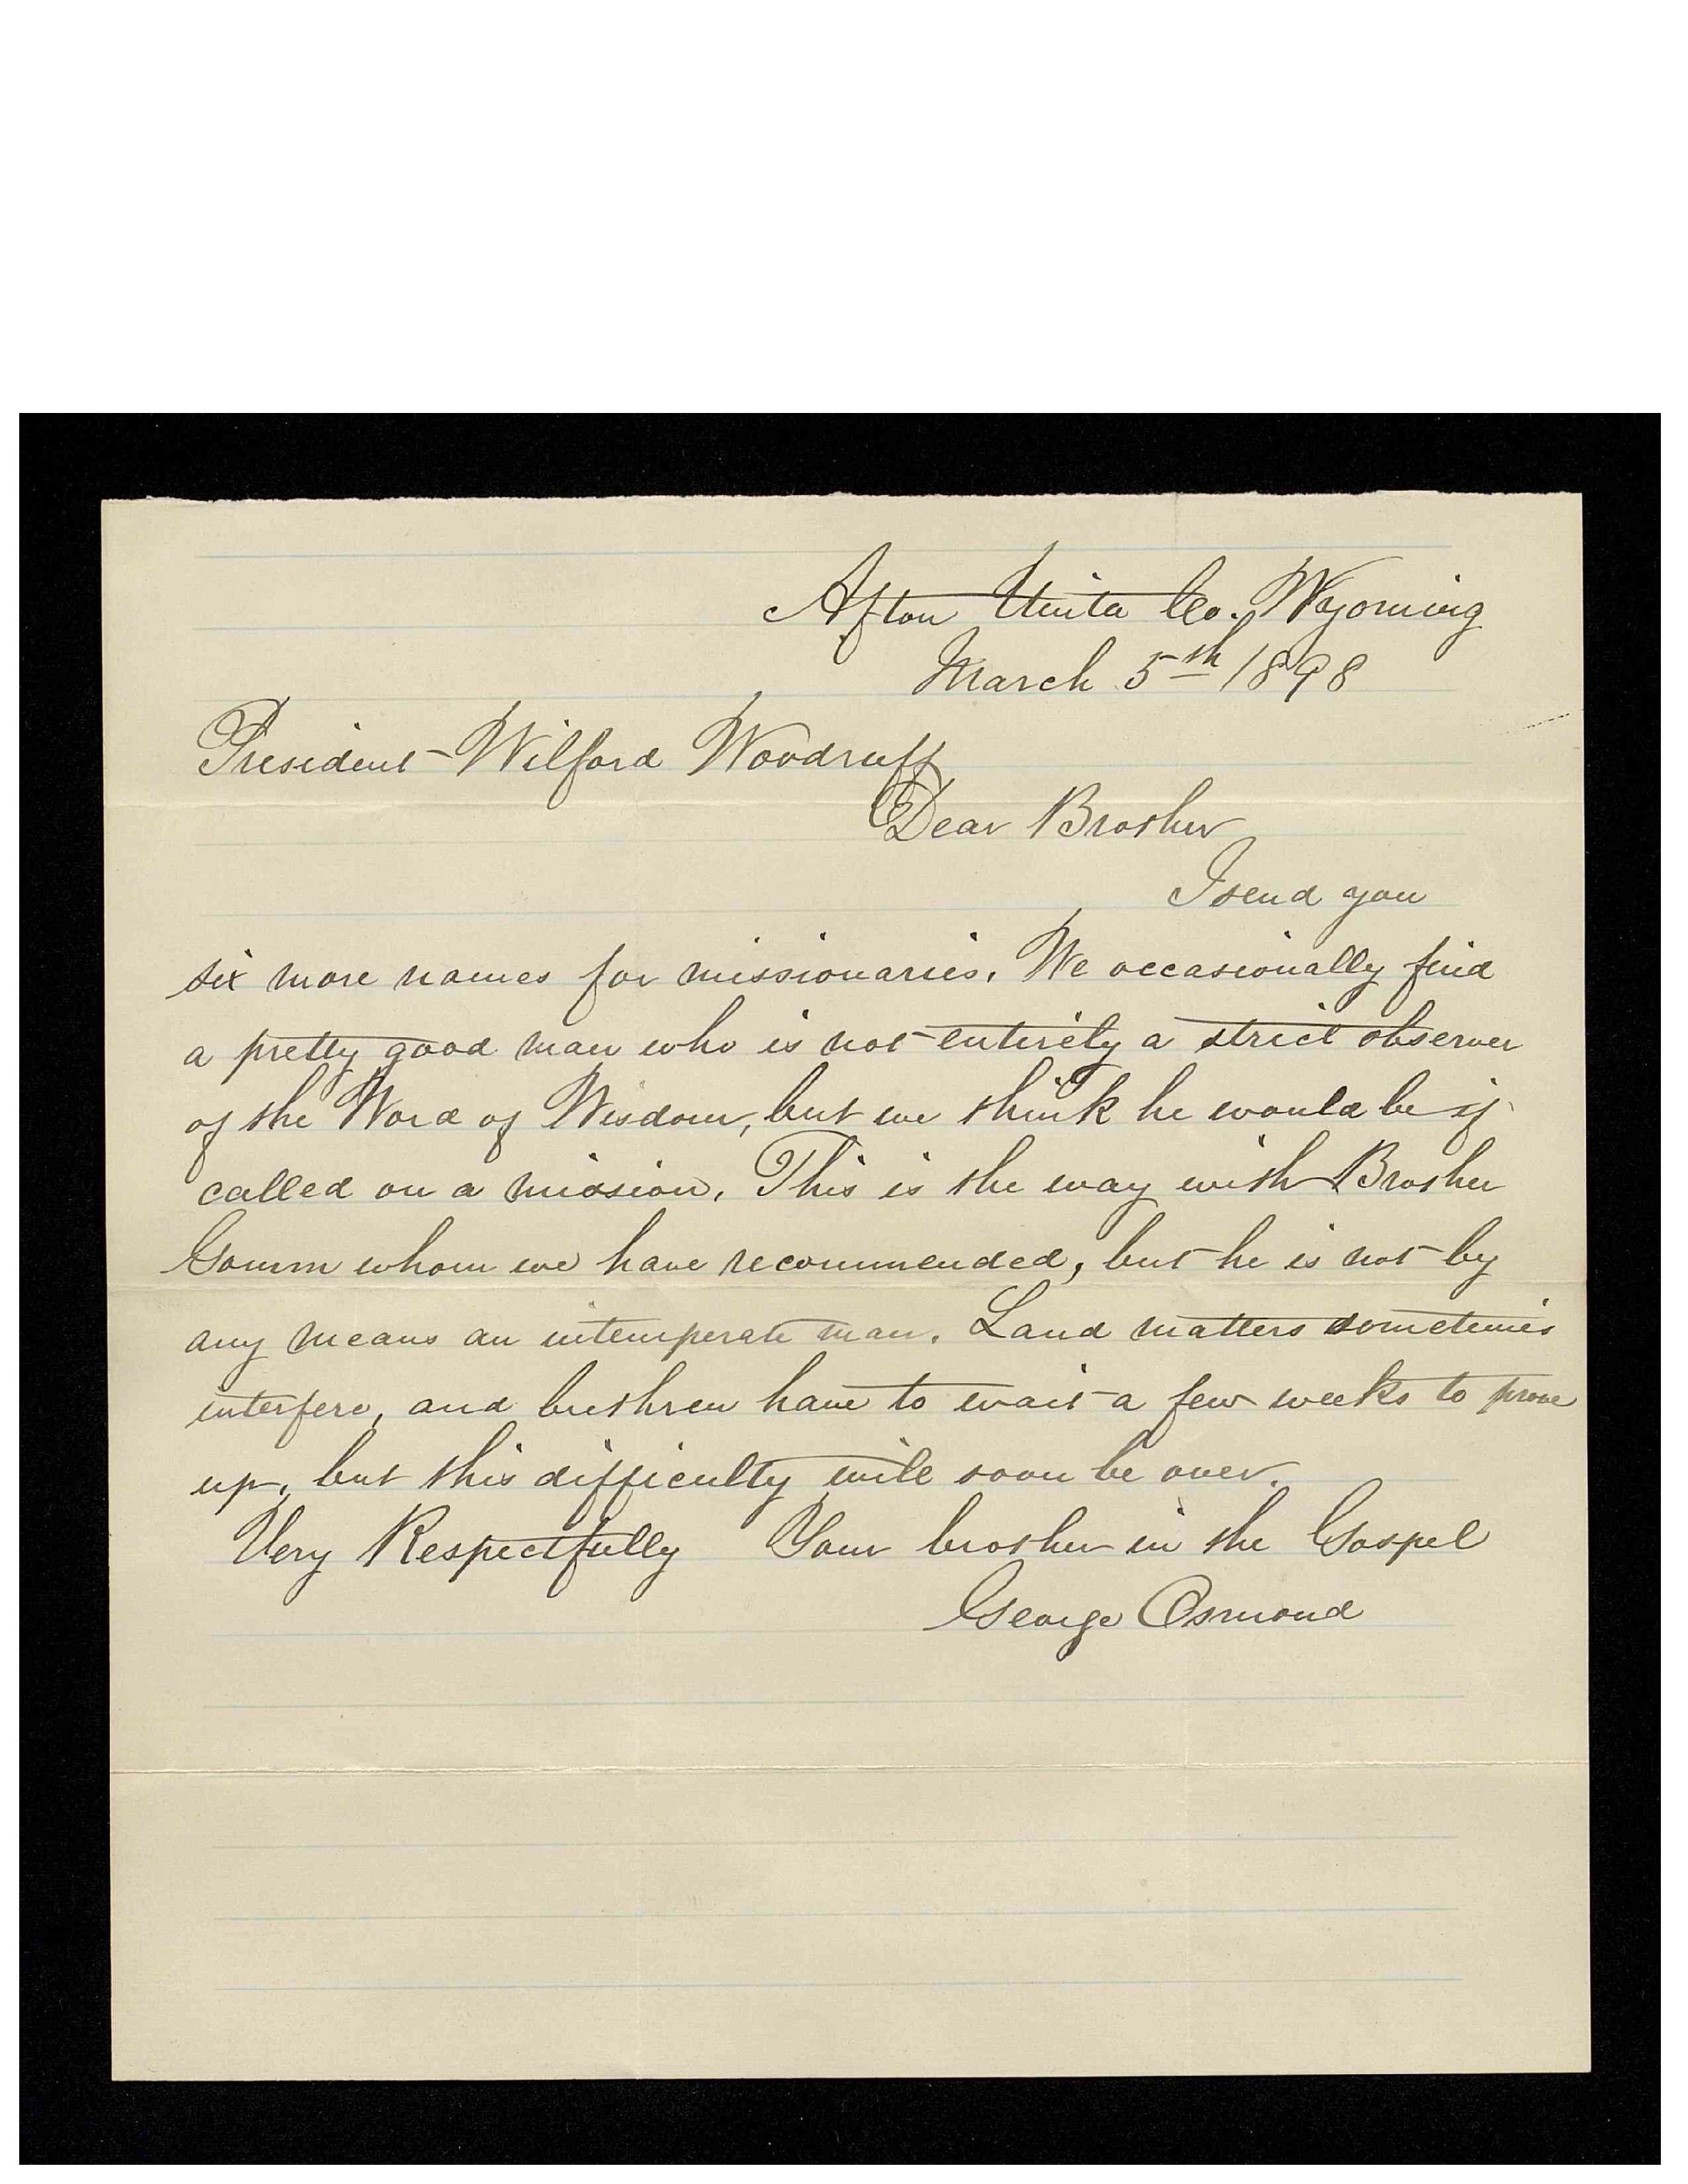 Afton Uinta Co. Wyoming
March 5th 1898
President Wilford Woodruff
Dear Brother
I send you
six more names for missionaries. We occasionally find
a pretty good man who is not entirely a strict observer
of the Word of Wisdom, but we think he would be if
called on a mission. This is the way with Brother
Gomm whom we have recommended, but he is not by
any means an intemperate man. Land matters sometimes
interfere, and brethren have to wait a few weeks to prove
up, but this difficulty will soon be over.
Very Respectfully Your brother in the Gospel
George Osmond